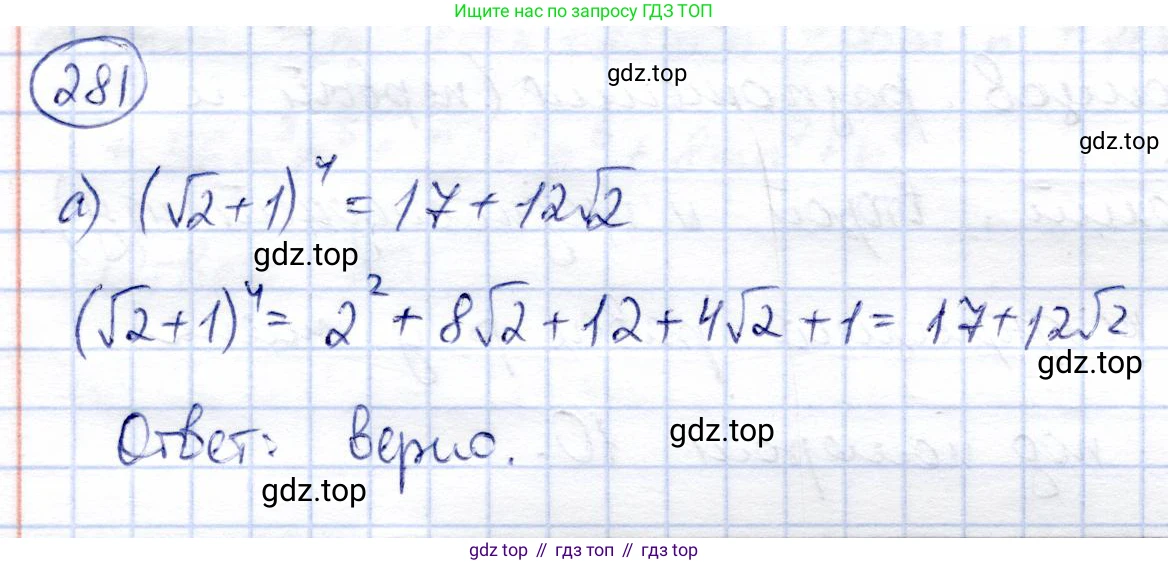 Ищите нас по запросу ГДЗ ТОП
281
gdz.top
gdz.top
а) (√2+1)⁴ = 17 + 12√2
gdz.top
(√2+1)⁴ = 2² + 8√2 + 12 + 4√2 + 1 = 17+12√2
gdz.top
Ответ: верно.
gdz.top
gdz.top
gdz top // гдз топ // гдз top